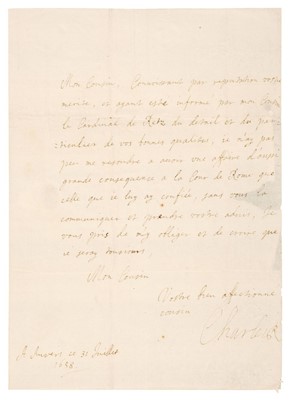 Mon Cousin, Connoissant par reputation vostre
merite, et ayant esté informé par mon Cousin
le Cardinal de Retz du detail et du par-
ticulier de vos bonnes qualitez, ie n'ay pas
peu me resoudre a avoir une affaire d'aussi
grande consequence a la Cour de Rome que
celle que ie luy ay confiée, sans vous la
communiquer et prendre vostre advis, Je
vous prie de m'y obliger et de croire que
ie seray tousiours
Mon Cousin
Vostre bien affectionné
cousin
Charles R
A Anvers ce 31 Juillet
1658